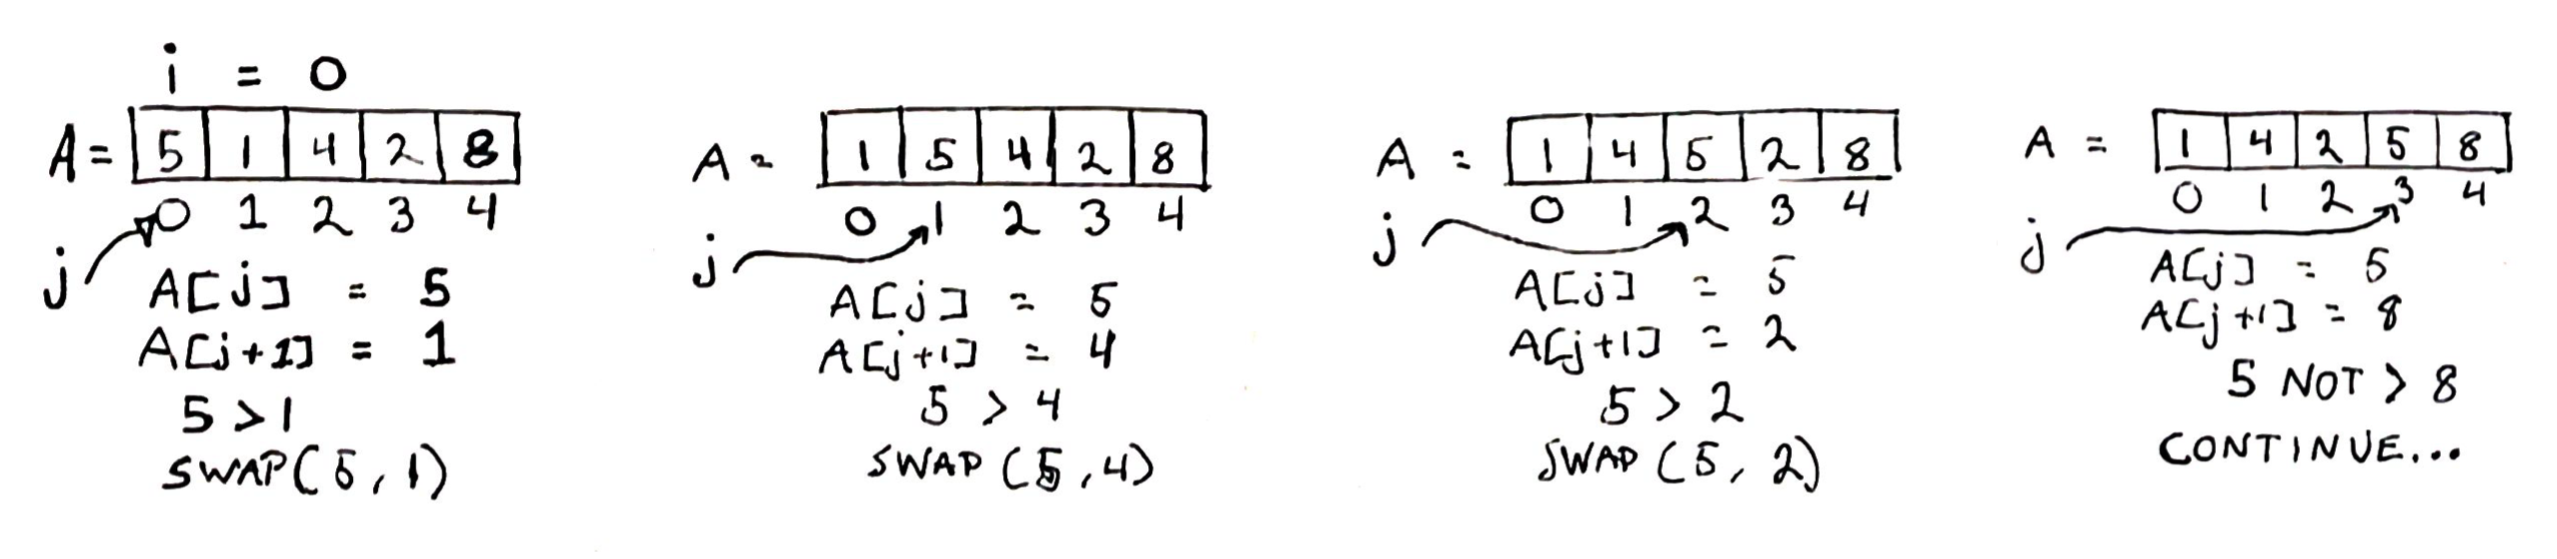 i = 0
A = 5 1 4 2 8
0 1 2 3 4
j
A[j] = 5
A[j+1] = 1
5 > 1
SWAP(5, 1)
A = 1 5 4 2 8
0 1 2 3 4
j
A[j] = 5
A[j+1] = 4
5 > 4
SWAP (5, 4)
A = 1 4 5 2 8
0 1 2 3 4
j
A[j] = 5
A[j+1] = 2
5 > 2
SWAP (5, 2)
A = 1 4 2 5 8
0 1 2 3 4
j
A[j] = 5
A[j+1] = 8
5 NOT > 8
CONTINUE...